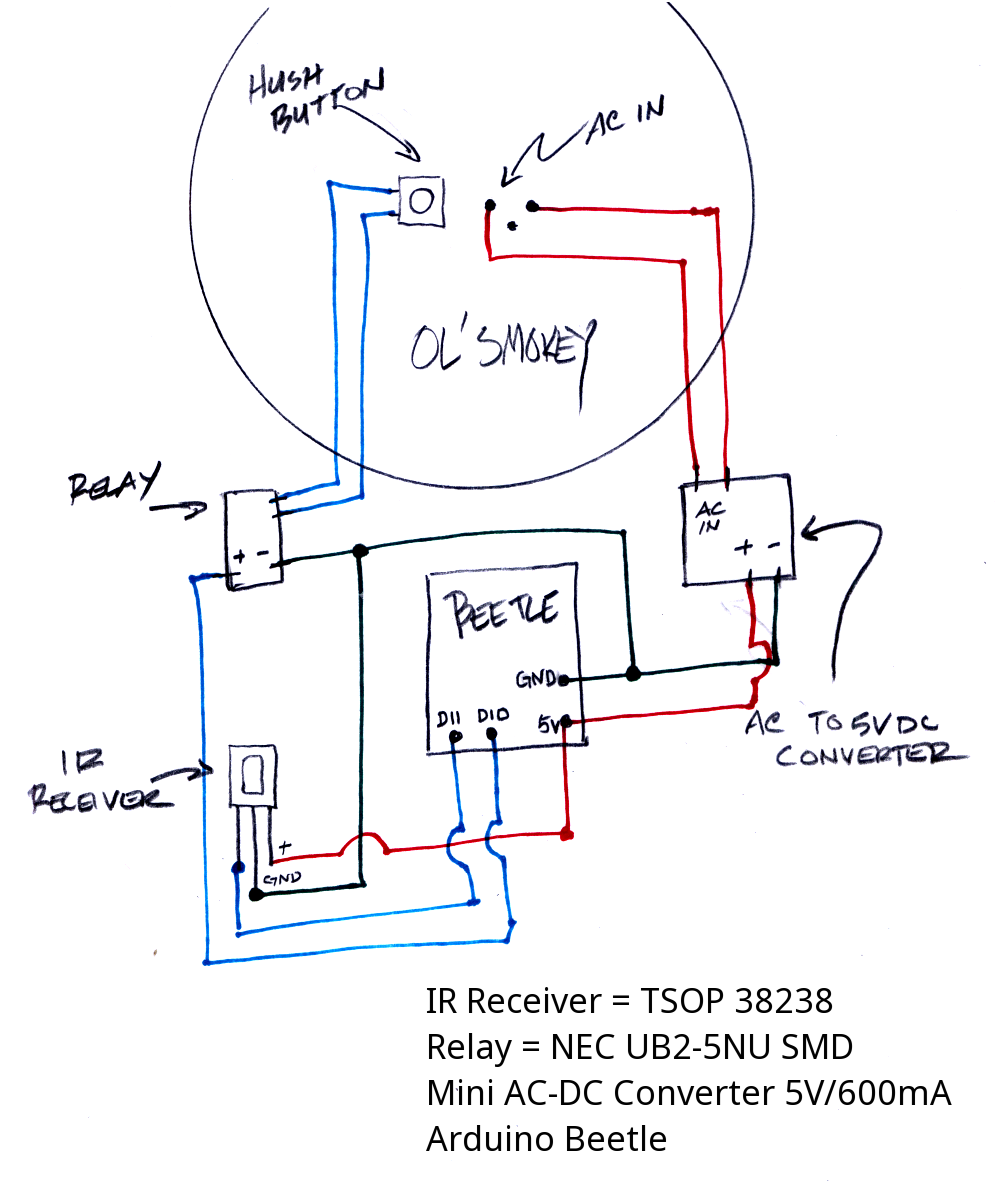 HUSH
BUTTON
AC IN
OL' SMOKEY
RELAY
+ -
AC
IN
+ -
BEETLE
GND
D11 D10 5V
AC TO 5VDC
CONVERTER
IR
RECEIVER
+
GND
IR Receiver = TSOP 38238
Relay = NEC UB2-5NU SMD
Mini AC-DC Converter 5V/600mA
Arduino Beetle